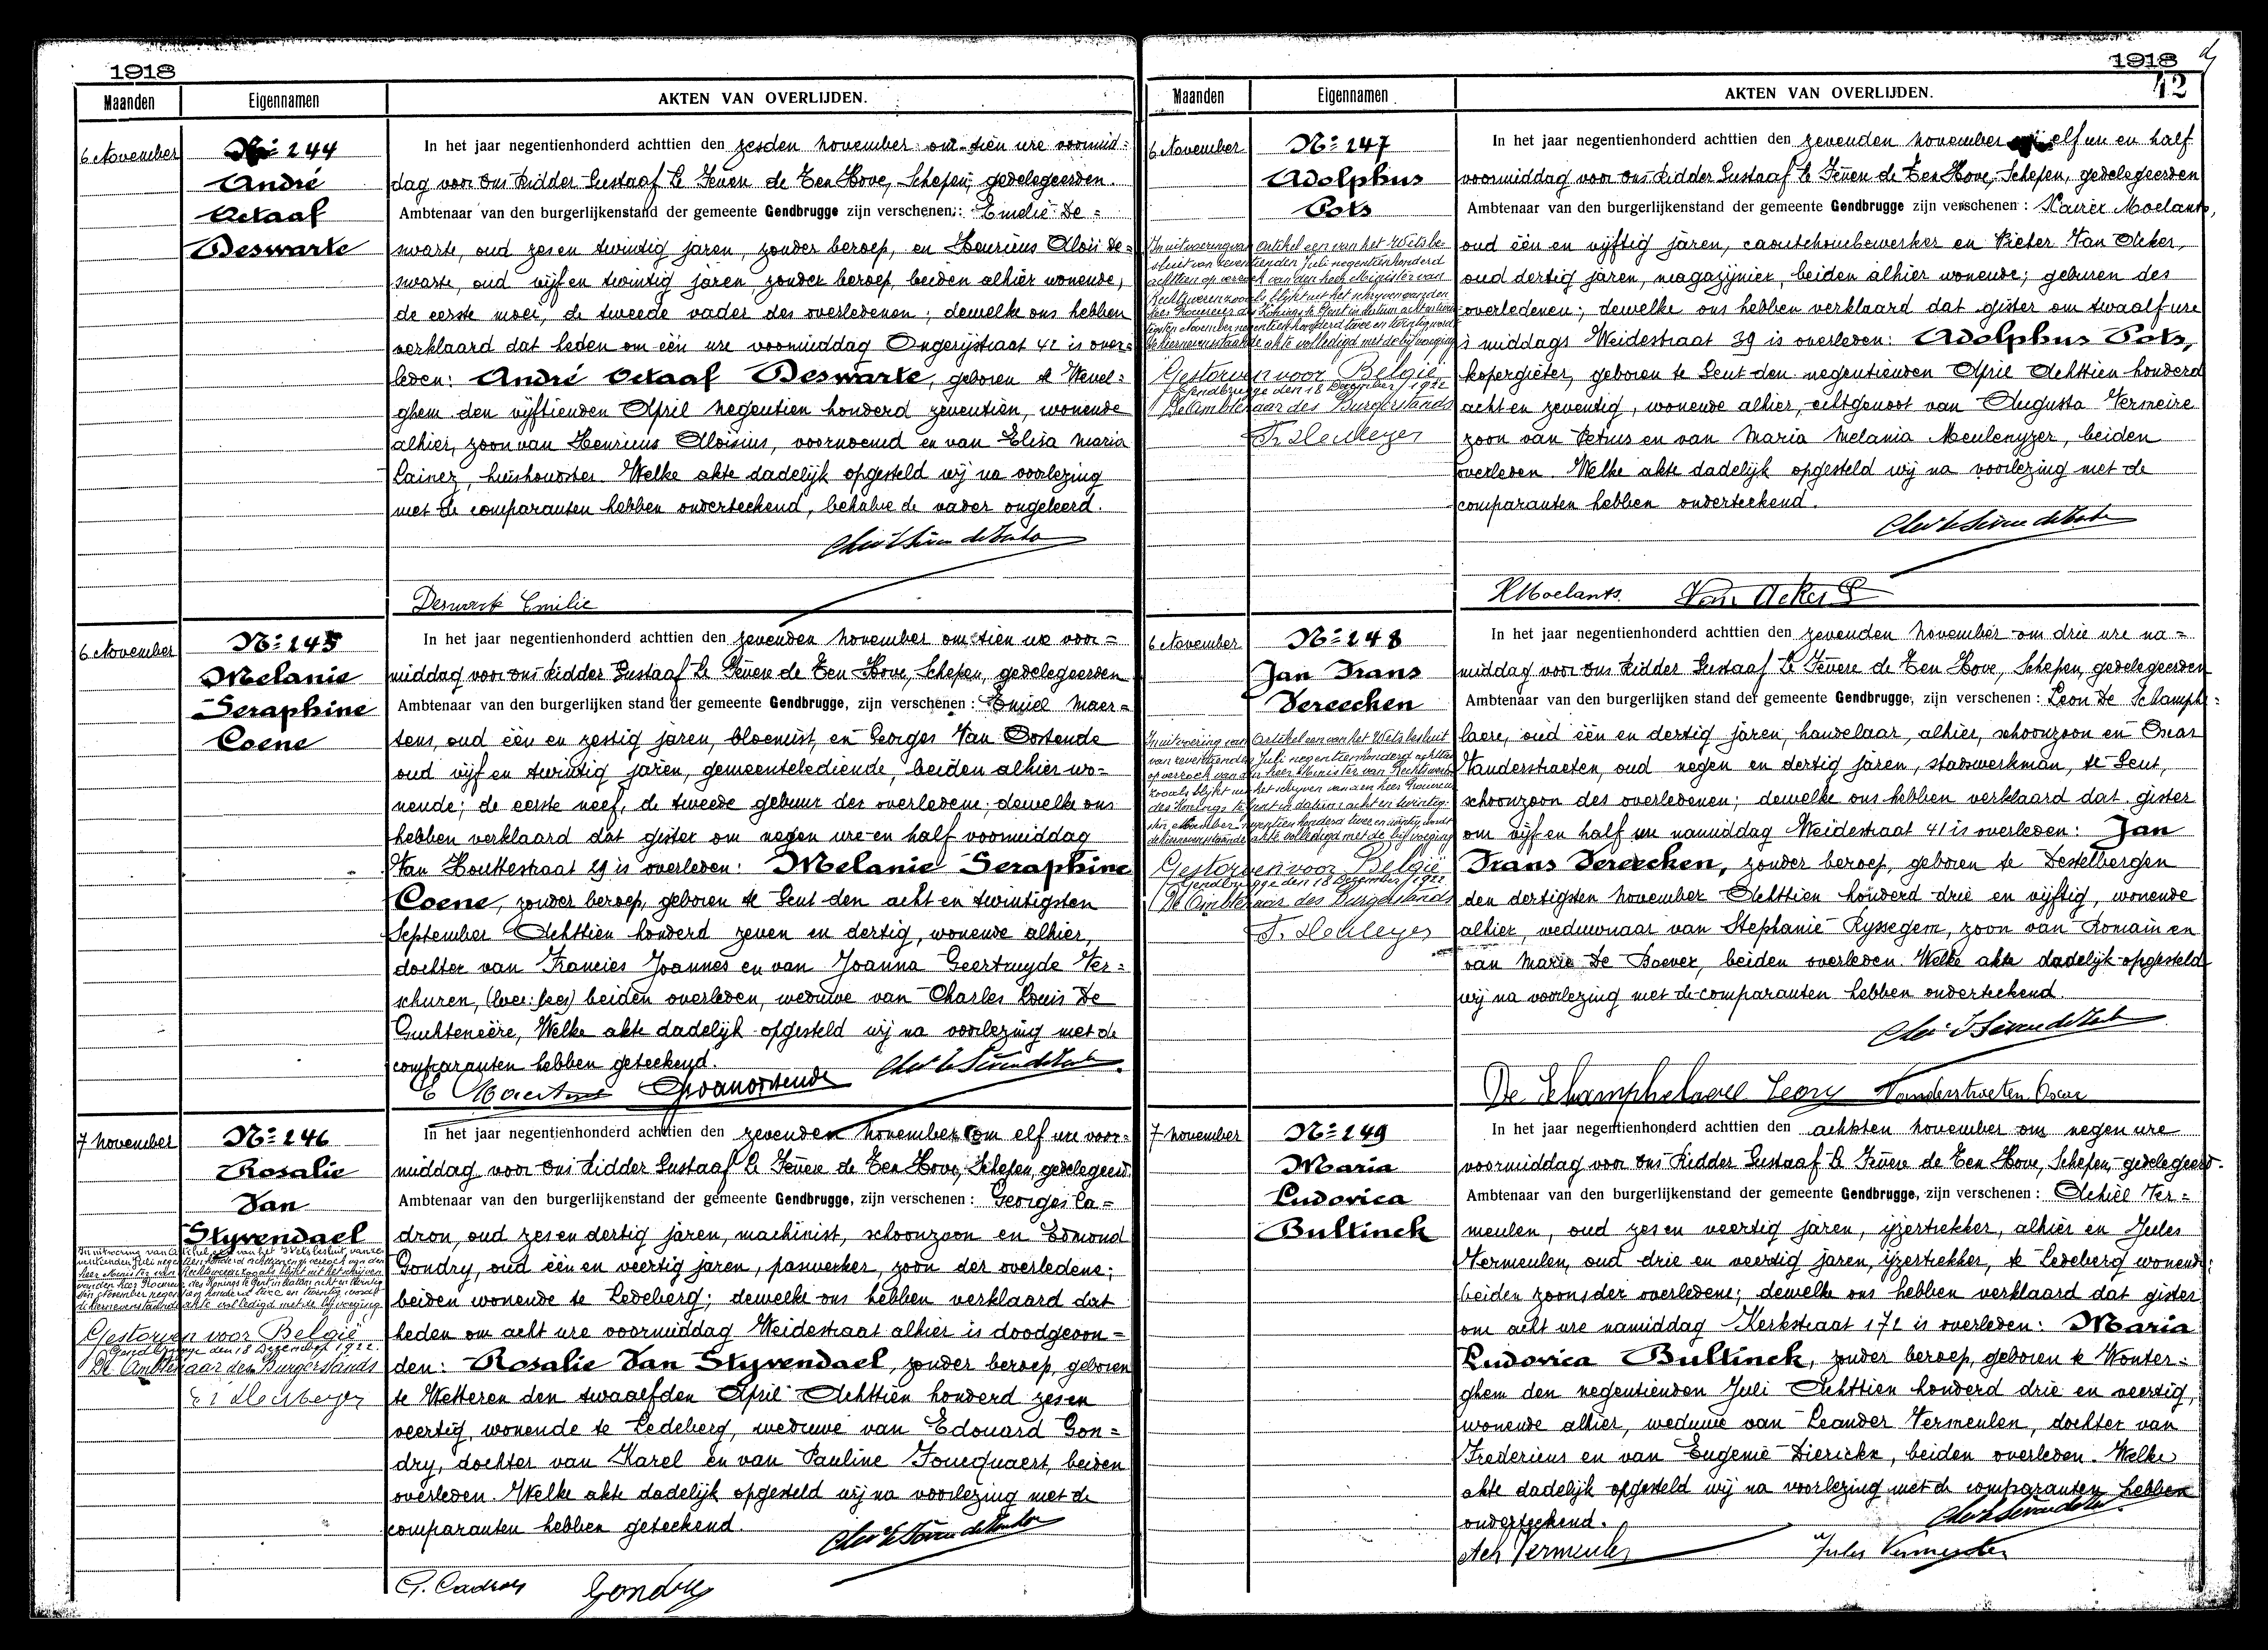 1918
Maanden
Eigennamen
AKTEN VAN OVERLIJDEN.
6 November
No 244
André
Octaaf
Deswarte
In het jaar negentienhonderd achttien den zesden november om tien ure voormid=
dag voor ons Ridder Gustaaf Le Fèvere de Ten Hove, Schepen, gedelegeerden
Ambtenaar van den burgerlijkenstand der gemeente Gendbrugge zijn verschenen: Emelie De=
swarte, oud zes en twintig jaren, zonder beroep, en Henricus Aloïs De=
swarte, oud vijf en twintig jaren, zonder beroep, beiden alhier wonende,
de eerste moei, de tweede vader des overledenen; dewelke ons hebben
verklaard dat heden om één ure voormiddag Ongerijstraat 42 is over=
leden: André Octaaf Deswarte, geboren te Wevel=
ghem den vijftienden April negentien honderd zeventien, wonende
alhier, zoon van Henricus Aloisius, voornoemd en van Elisa Maria
Lainez, huishoudster. Welke akte dadelijk opgesteld wij na voorlezing
met de comparanten hebben onderteekend, behalve de vader ongeleerd.
Deswarte Emilie
6 November
No 245
Melanie
Seraphine
Coene
In het jaar negentienhonderd achttien den zevenden november om tien ure voor=
middag voor ons Ridder Gustaaf Le Fèvere de Ten Hove, Schepen, gedelegeerden
Ambtenaar van den burgerlijken stand der gemeente Gendbrugge, zijn verschenen: Emiel Maer=
tens, oud één en zestig jaren, bloemist, en Georges Van Oostende
oud vijf en twintig jaren, gemeentebediende, beiden alhier wo=
nende; de eerste neef, de tweede gebuur der overledene; dewelke ons
hebben verklaard dat gister om negen ure en half voormiddag
Van Houttestraat 29 is overleden: Melanie Seraphine
Coene, zonder beroep, geboren te Gent den acht en twintigsten
September Achttien honderd zeven en dertig, wonende alhier,
dochter van Francies Joannes en van Joanna Geertruyde Ver=
schuren, beiden overleden, weduwe van Charles Louis De
Guchteneëre, Welke akte dadelijk opgesteld wij na voorlezing met de
comparanten hebben geteekend.
E Maertens GVanoostende
7 november
No 246
Rosalie
Van
Styvendael
In het jaar negentienhonderd achttien den zevenden november om elf ure voor=
middag voor ons Ridder Gustaaf Le Fèvere de Ten Hove, Schepen, gedelegeerd
Ambtenaar van den burgerlijkenstand der gemeente Gendbrugge, zijn verschenen: Georges Ca=
dron, oud zes en dertig jaren, machinist, schoonzoon en Edmond
Gondry, oud één en veertig jaren, paswerker, zoon der overledene;
beiden wonende te Ledeberg; dewelke ons hebben verklaard dat
heden om acht ure voormiddag Weidestraat alhier is doodgevon=
den: Rosalie Van Styvendael, zonder beroep, geboren
te Wetteren den twaalfden April Achttien honderd zes en
veertig, wonende te Ledeberg, weduwe van Edouard Gon=
dry, dochter van Karel en van Pauline Foucquaert, beiden
overleden. Welke akte dadelijk opgesteld wij na voorlezing met de
comparanten hebben geteekend.
Gestorven voor België
Gendbrugge den 18 December 1922.
De Ambtenaar des Burgerstands
G. Cadron Gondry
1918
42
Maanden
Eigennamen
AKTEN VAN OVERLIJDEN.
6 November
No 247
Adolphus
Pots
In het jaar negentienhonderd achttien den zevenden november elf ure en half
voormiddag voor ons Ridder Gustaaf Le Fèvere de Ten Hove, Schepen, gedelegeerden
Ambtenaar van den burgerlijkenstand der gemeente Gendbrugge zijn verschenen: Xavier Moelants,
oud één en vijftig jaren, caoutchoucbewerker en Pieter Van Acker,
oud dertig jaren, magazijnier, beiden alhier wonende; geburen des
overledenen; dewelke ons hebben verklaard dat gister om twaalf ure
's middags Weidestraat 39 is overleden: Adolphus Pots,
kopergieter, geboren te Gent den negentienden April Achttien honderd
acht en zeventig, wonende alhier, echtgenoot van Augusta Vermeire
zoon van Petrus en van Maria Melania Meulenyzer, beiden
overleden. Welke akte dadelijk opgesteld wij na voorlezing met de
comparanten hebben onderteekend.
In uitvoering van artikel een van het Wetsbe
sluit van zeventienden Juli negentienhonderd
achttien op verzoek van den heer Minister van
Rechtwezen zooals blijkt uit het schrijven van den
heer Procureur des Konings te Gent in datum acht en twin
tigsten November negentien honderd twee en twintig wordt
de hiernevenstaande akte volledigd met de bijvoeging
Gestorven voor België
Gendbrugge den 18 December 1922
De Ambtenaar des Burgerstands
XMoelants. Van Acker P
6 November
No 248
Jan Frans
Vereecken
In het jaar negentienhonderd achttien den zevenden november om drie ure na=
middag voor ons Ridder Gustaaf Le Fèvere de Ten Hove, Schepen, gedelegeerden
Ambtenaar van den burgerlijken stand der gemeente Gendbrugge, zijn verschenen: Leon De Schamphe=
laere, oud één en dertig jaren, handelaar, alhier, schoonzoon en Oscar
Vanderstraeten, oud negen en dertig jaren, stadswerkman, te Gent,
schoonzoon des overledenen; dewelke ons hebben verklaard dat gister
om vijf en half ure namiddag Weidestraat 41 is overleden: Jan
Frans Vereecken, zonder beroep, geboren te Destelbergen
den dertigsten november Achttien honderd drie en vijftig, wonende
alhier, weduwnaar van Stephanie Ryssegem, zoon van Romain en
van Marie De Boever, beiden overleden. Welke akte dadelijk opgesteld
wij na voorlezing met de comparanten hebben onderteekend.
Gestorven voor België
Gendbrugge den 18 December 1922
De Ambtenaar des Burgerstands
De Schamphelaere Leon Vanderstraeten Oscar
7 november
No 249
Maria
Ludovica
Bultinck
In het jaar negentienhonderd achttien den achtsten november om negen ure
voormiddag voor ons Ridder Gustaaf Le Fèvere de Ten Hove, Schepen, gedelegeerd.
Ambtenaar van den burgerlijkenstand der gemeente Gendbrugge, zijn verschenen: Achiel Ver=
meulen, oud zes en veertig jaren, ijzertrekker, alhier en Jules
Vermeulen, oud drie en veertig jaren, ijzertrekker, te Ledeberg wonende;
beiden zoons der overledene; dewelke ons hebben verklaard dat gister
om acht ure namiddag Kerkstraat 171 is overleden: Maria
Ludovica Bultinck, zonder beroep, geboren te Wonter=
ghem den negentienden Juli Achttien honderd drie en veertig,
wonende alhier, weduwe van Leander Vermeulen, dochter van
Fredericus en van Eugenie Dierickx, beiden overleden. Welke
akte dadelijk opgesteld wij na voorlezing met de comparanten hebben
onderteekend.
Ach Vermeulen Jules Vermeulen